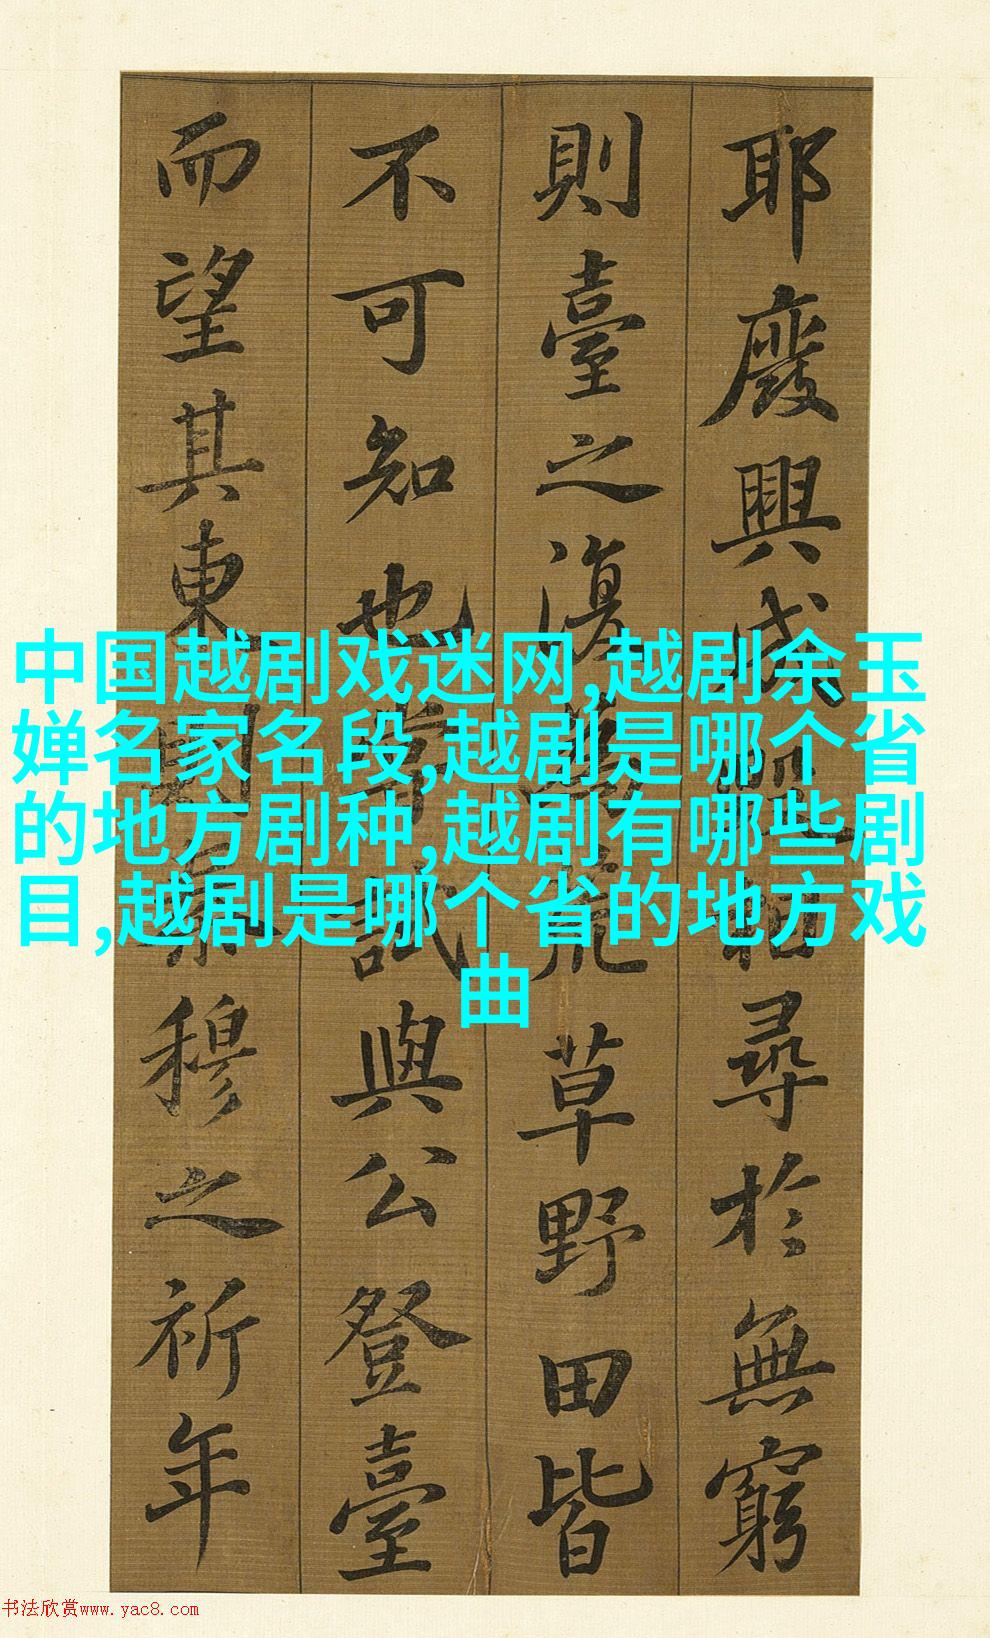 中国越剧戏迷网,越剧余玉
婵名家名段,越剧是哪个省
的地方剧种,越剧有哪些剧
目,越剧是哪个省的地方戏
曲
耶廢興成毀相尋於無窮
則臺之復為荒草野田皆
不可知也嘗試與公登臺
而望其東則秦穆之祈年
书法欣赏www.yac8.com